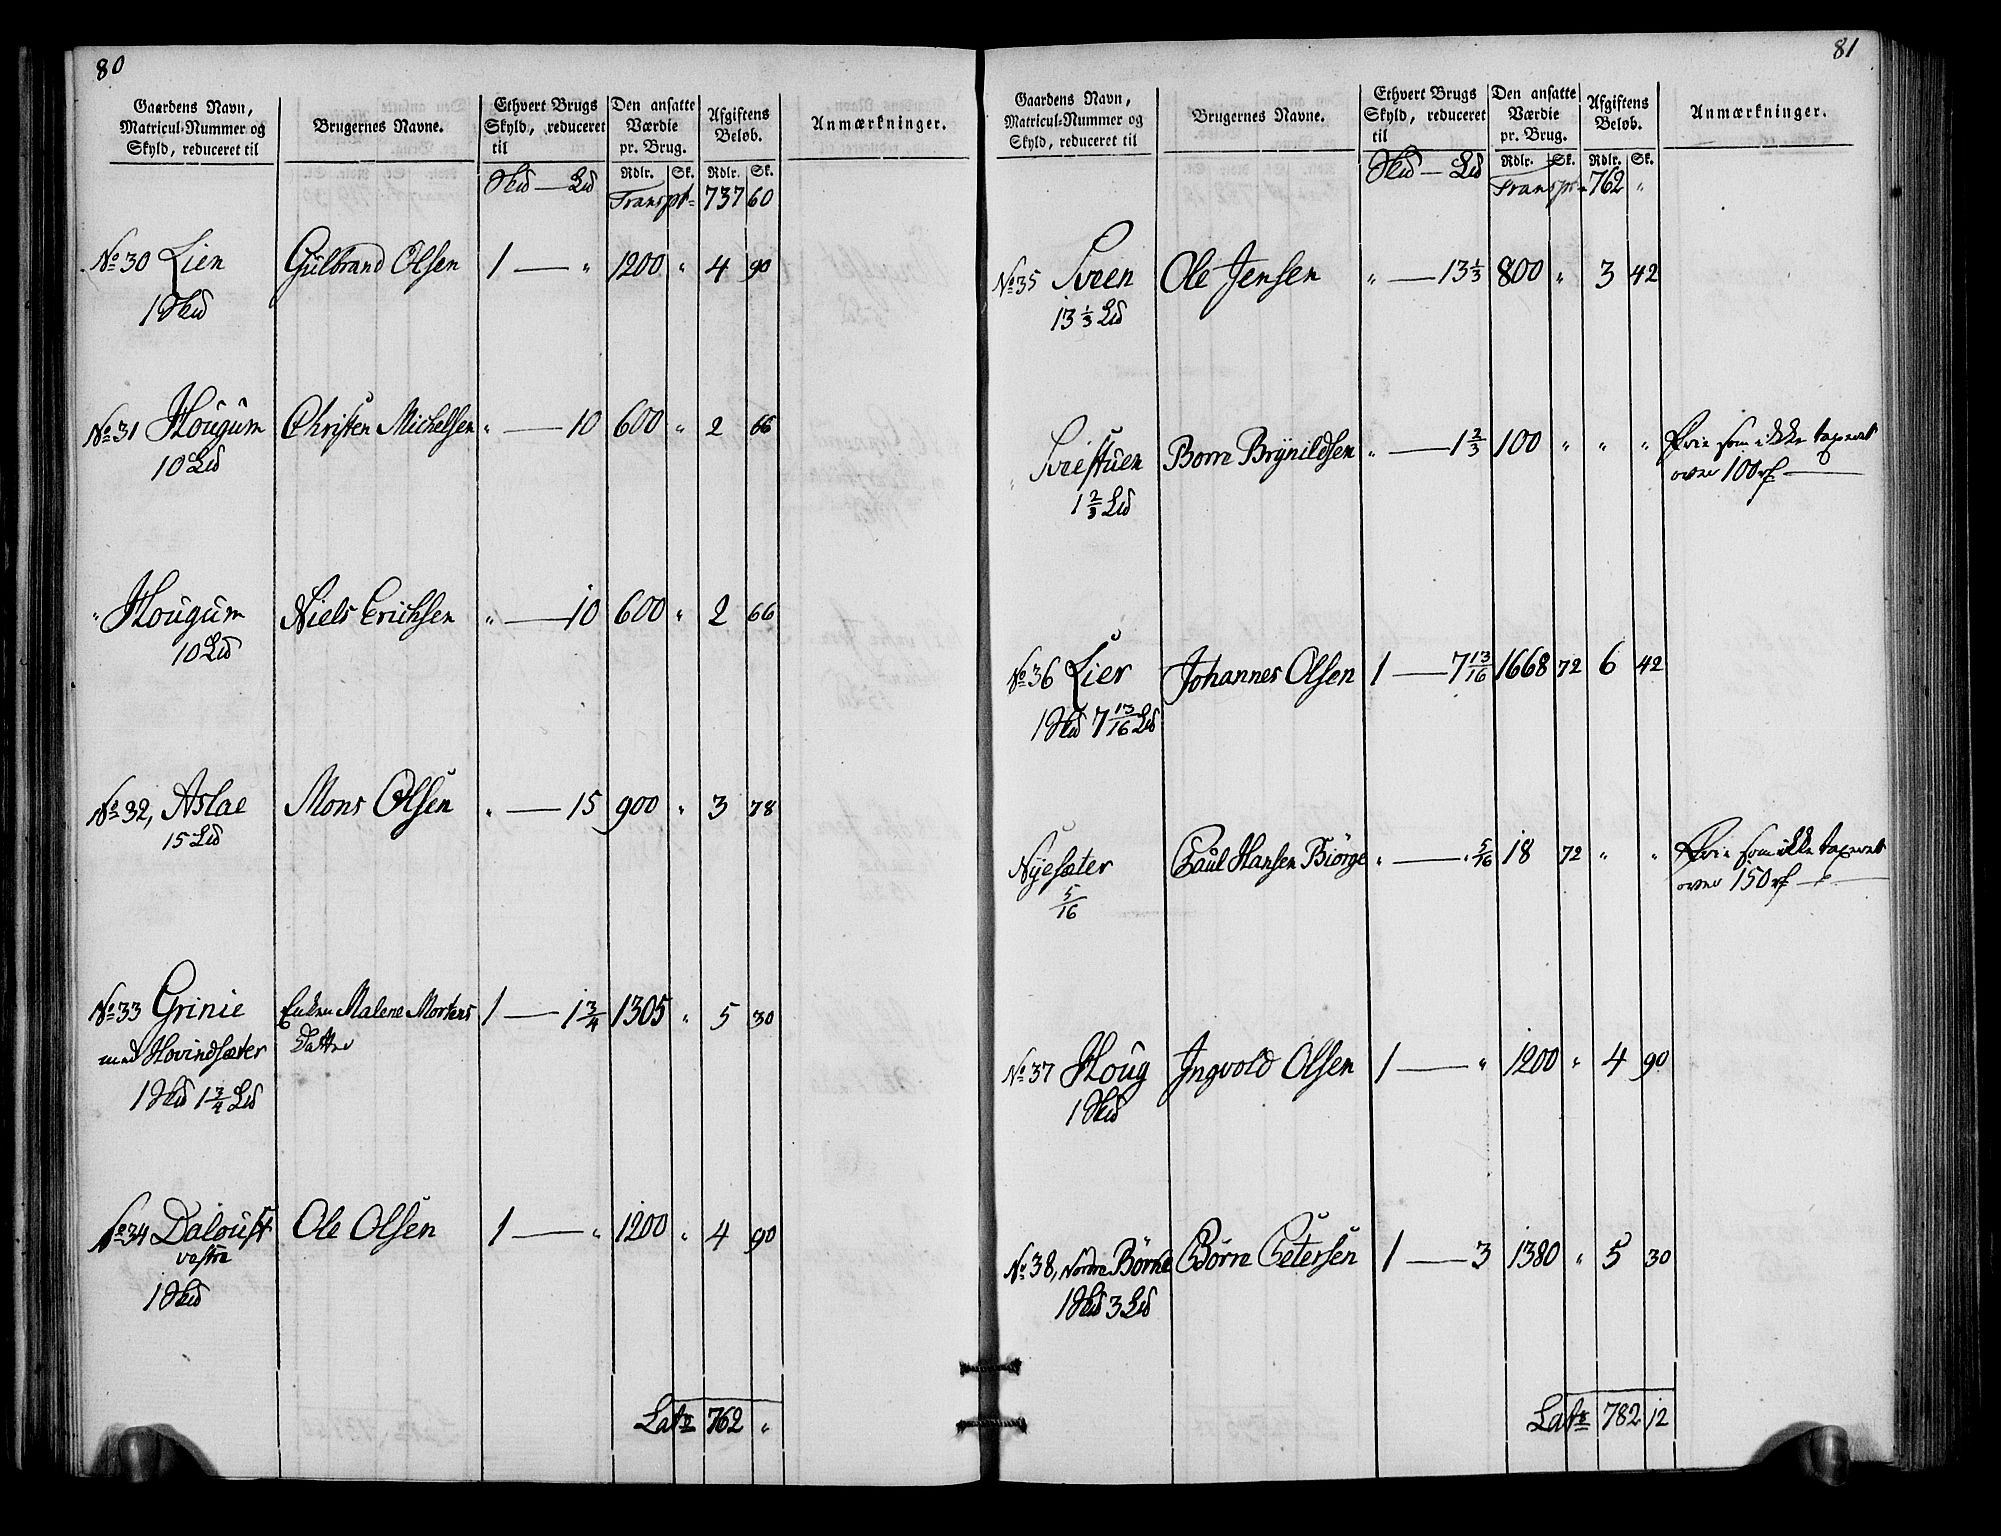 80
Gaardens Navn, Matricul-Nummer og Skyld, reduceret til
Brugernes Navne.
Ethvert Brugs Skyld, reduceret til
Den ansatte Værdie pr. Brug.
Afgiftens Beløb.
Anmærkninger.
Skd — Ld Rdlr. Sk. Rdlr. Sk.
Transpt 737 60
No 30 Lien Gulbrand Olsen 1 — " 1200 " 4 90
1 Skd
No 31 Hougum Christen Michelsen " — 10 600 " 2 66
10 Ld
" Hougum Niels Erichsen " — 10 600 " 2 66
10 Ld
No 32, Aslae Mons Olsen " — 15 900 " 3 78
15 Ld
No 33 Grinie Enken Malene Mortens 1 — 1 3/4 1305 " 5 30
med Hovindsæter Datter
1 Skd 1 3/4 Ld
No 34 Daloust Ole Olsen 1 — " 1200 " 4 90
vestre
1 Skd
Lats 762 "
81
Gaardens Navn, Matricul-Nummer og Skyld, reduceret til
Brugernes Navne.
Ethvert Brugs Skyld, reduceret til
Den ansatte Værdie pr. Brug.
Afgiftens Beløb.
Anmærkninger.
Skd — Ld Rdlr. Sk. Rdlr. Sk.
Transpt 762 "
No 35 Sveen Ole Jensen " — 13 1/3 800 " 3 42
13 1/3 Ld
" Sveistuen Borre Brynildsen " — 1 2/3 100 " " " Frie som ikke taxeret
1 2/3 Ld over 100 rd —
No 36 Lier Johannes Olsen 1 — 7 13/16 1668 72 6 42
1 Skd 7 13/16 Ld
Nyesæter Paul Hansen Biörge " — " 5/16 18 72 " " Frie som ikke taxeret
5/16 over 150 rd —
No 37 Houg Ingvold Olsen 1 — " 1200 " 4 90
1 Skd
No 38, Nordre Börne Börre Petersen 1 — 3 1380 " 5 30
1 Skd 3 Ld
Lats 782 12